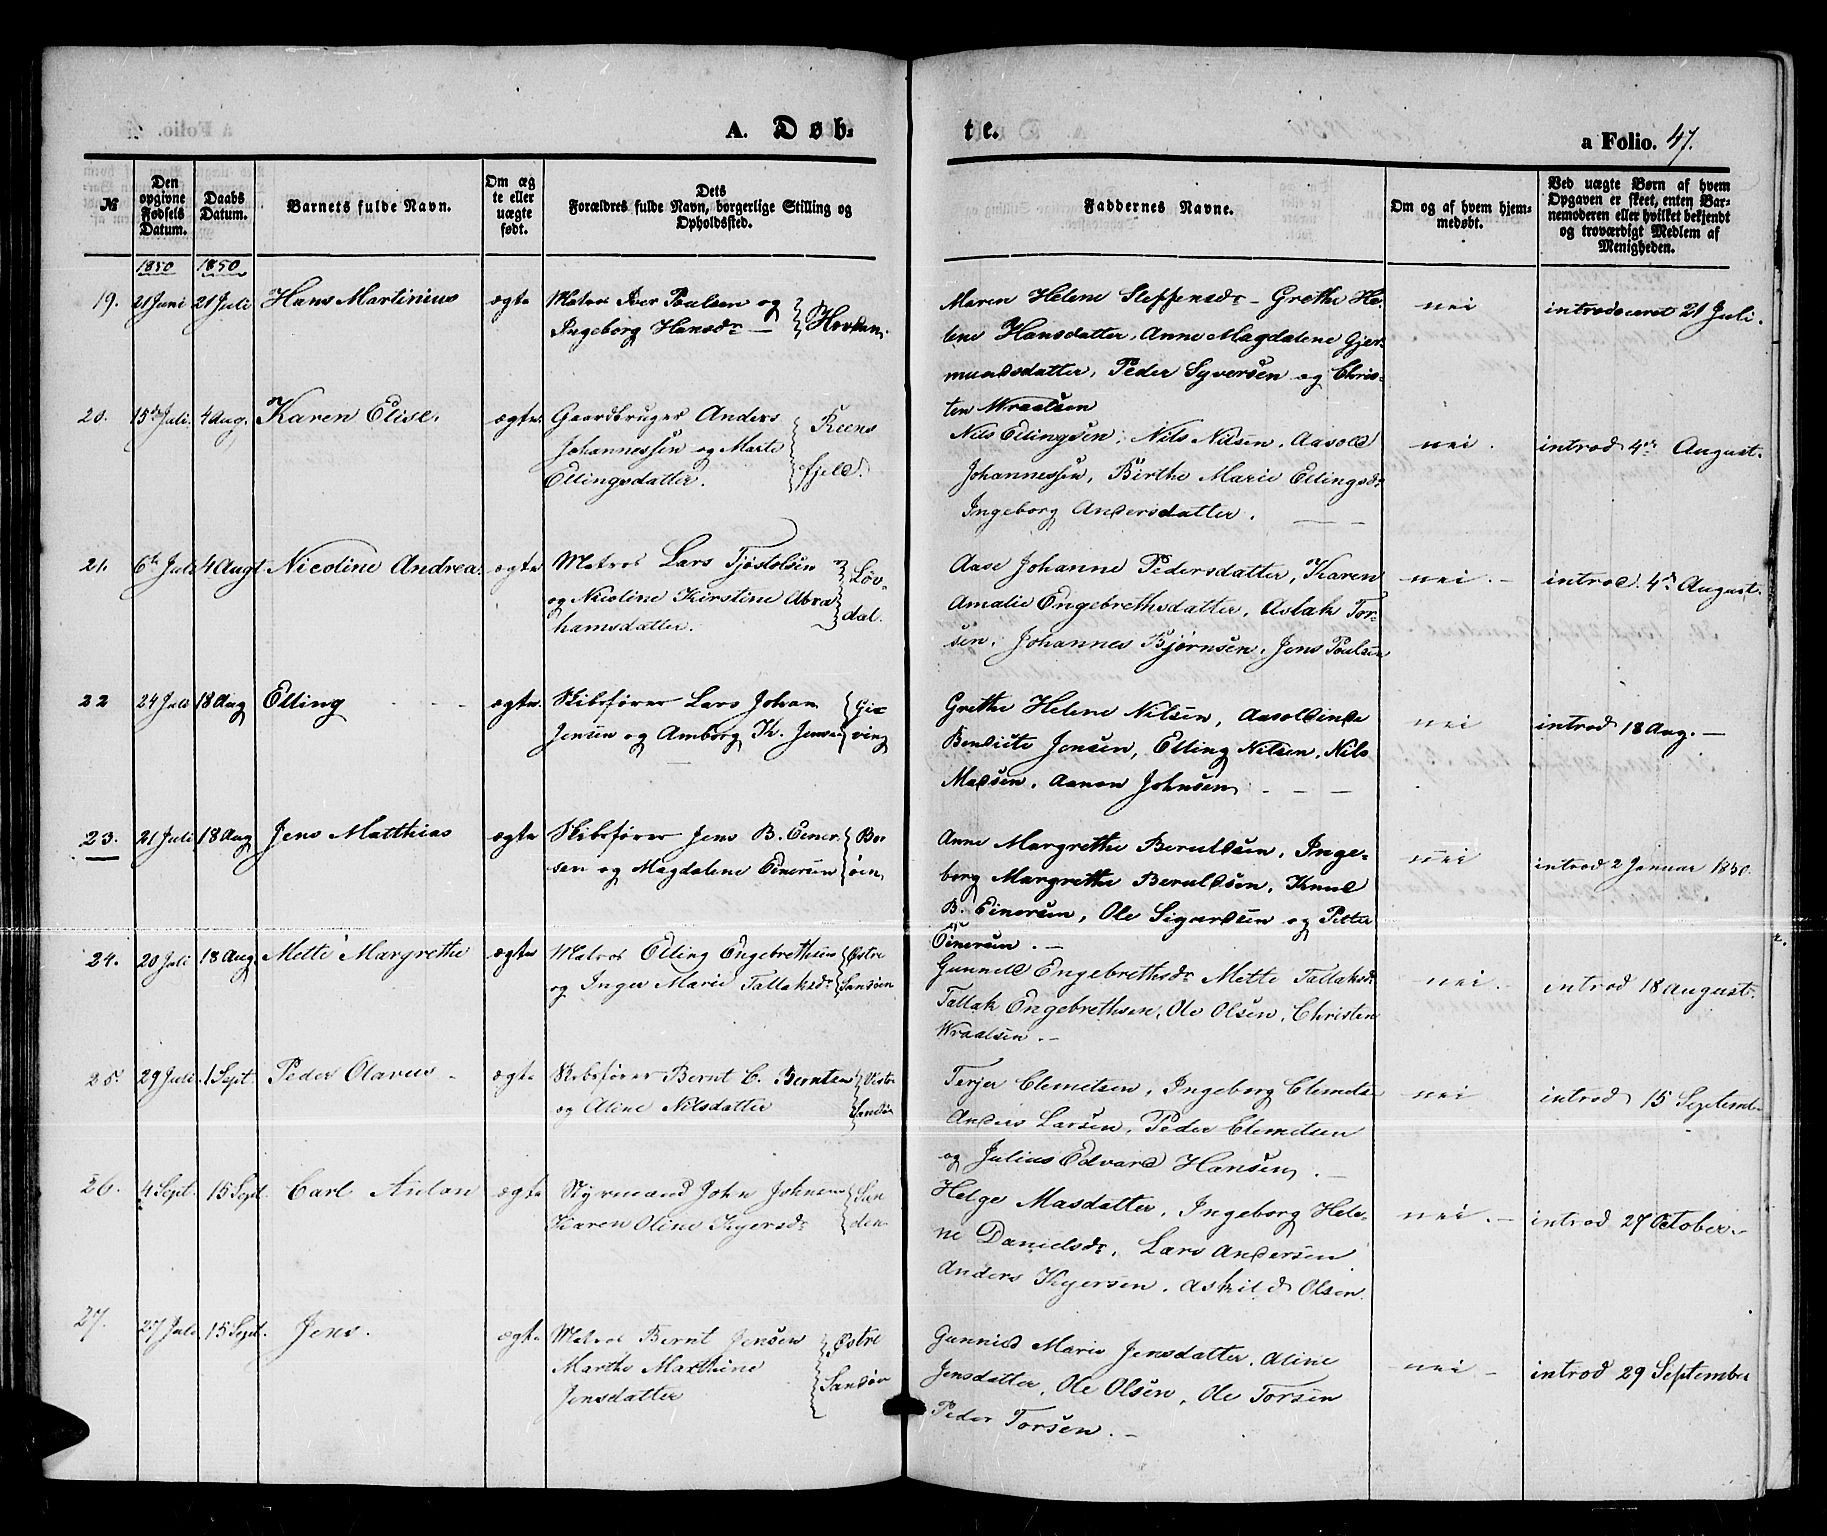 A. Døb-
te.
a Folio. 47.
№
Den opgivne Fødsels Datum.
Daabs Datum.
Barnets fulde Navn.
Om ægte eller uægte født.
Dets Forældres fulde Navn, borgerlige Stilling og Opholdssted.
Faddernes Navne.
Om og af hvem hjemmedøbt.
Ved uægte Børn af hvem Opgaven er skeet, enten Barnemoderen eller hvilket bekjendt og troværdigt Medlem af Menigheden.
1850 1850
19. 21 Juni 21 Juli Hans Martinius ægte Matros Iver Poulsen og
Ingeborg Hansdr — Hovdan
Maren Helene Steffensdr - Grethe He-
lene Hansdatter, Anne Magdalene Gjer-
mundsdatter, Peder Syversen og Chris-
ten Wraalsen
nei introduceret 21 Juli.
20. 15de Juli. 4 Aug. Karen Elise. ægte Gaardbruger Anders
Johannessen og Marte
Ellingsdatter. Keens
fjeld.
Nils Ellingsen, Nils Nilsen, Aasold
Johannessen, Birthe Marie Ellingsdr
Ingeborg Andersdatter.
nei. introd 4de August.
21. 6te Juli 4 Augt. Nicoline Andrea. ægte Matros Lars Tjøstolsen
og Nicoline Kirstine Abra
hamsdatter. Løv-
dal.
Aase Johanne Pedersdatter, Karen
Amalie Engebrethsdatter, Aslak Tor-
sen. Johannes Bjørnsen. Jens Poulsen
nei. — introd. 4de August.
22 24 Juli 18 Aug Elling ægte. Skibsfører Lars Johan
Jensen og Amborg K. Jensen Gie
ving
Grethe Helene Nilsen, Aasoldine
Bendicte Jensen, Elling Nilsen, Nils
Madsen. Aanon Johnsen
nei introd 18 Aug. —
23. 21 Juli 18 Aug Jens Matthias ægte Skibsfører Jens B. Einer-
sen og Magdalene Einersen Bor
øen
Anne Margrethe Beruldsen, Inge-
borg Margrethe Beruldsen, Knud
B. Einersen, Ole Sigurdsen og Petter
Einersen. —
nei introd 2 Januar 1850.
24. 20 Juli 18 Aug. Mette Margrethe ægte Matros Elling Engebrethsen
og Inger Marie Tallaksdr Østre
Sandøen
Gunnild Engebrethsdr Mette Tallaksdr
Tallak Engebrethsen, Ole Olsen, Christen
Wraalsen. —
nei. — introd 18 August.
25. 29 Juli. 1 Sept. Peder Olavus — ægte Skibsfører Bernt C. Berntsen
og Aline Nilsdatter Vestre
Sandøe
Terjer Clemetsen, Ingeborg Clemets-
Anders Larsen. Peder Clemetsen
og Julius Edvard Hansen. —
nei introd 15 Septemb-
26. 4 Sept. 15 Sept. Carl ægte Styrmand John Johnsen
Karen Oline Kgersdr San
den
Helge Masdatter, Ingeborg Hele-
ne Danielsdr. Lars Andersen
Anders Kgersen. Askild Olsen.
nei. — introd 27 October. -
27. 27 Juli 15 Sept. Jens. ægte Matros Bernt Jensen
Marthe Marthine
Jensdatter Østre
Sandøe
Gunnild Marie Jensdatter. Aline
Jensdatter, Ole Olsen, Ole Torsen
Peder Torsen. —
nei — introd 29 September